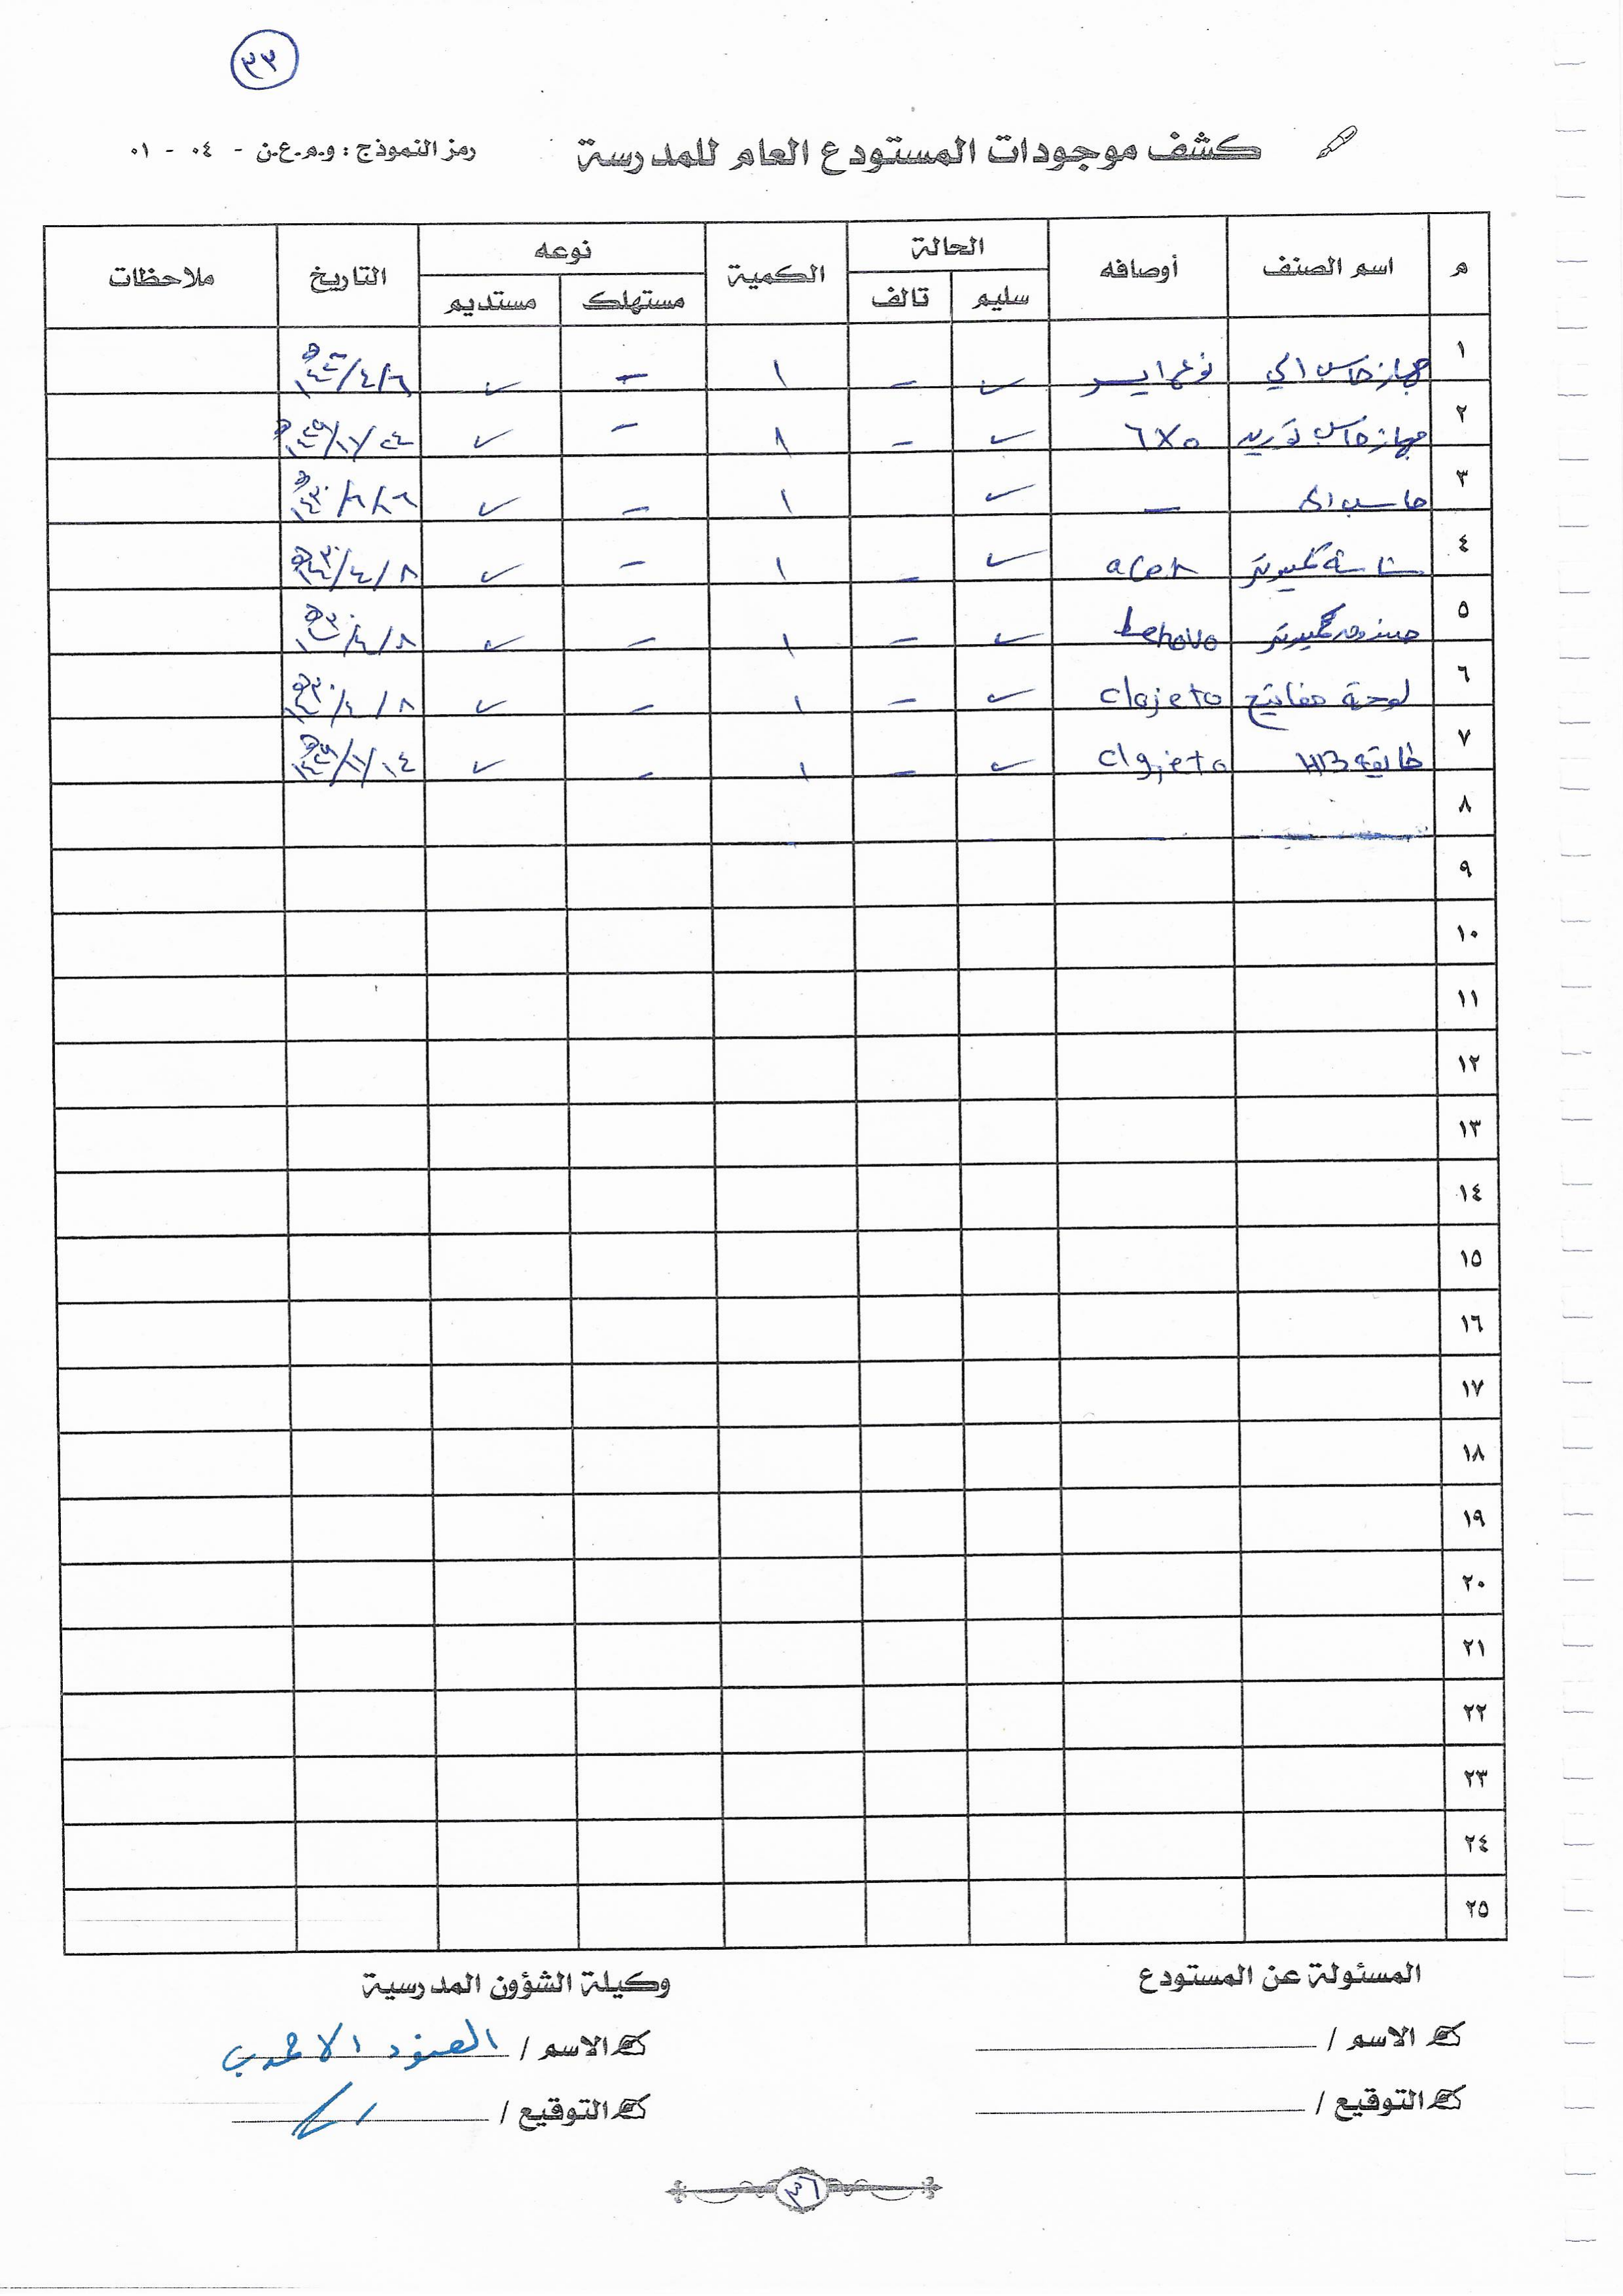 ٣٣
كشف موجودات المستودع العام للمدرسة رمز النموذج : و.م.ع.ن - ٠٤ - ٠١
م اسم الصنف أوصافه الحالة الكمية نوعه التاريخ ملاحظات
سليم تالف مستهلك مستديم
١ جهاز حاسب الي نوع ايسر ✓ - ١ - ✓ ٦/٤/
٢ جهاز حاسب توريد ٦٧٥ ✓ - ١ - ✓ ٢٤/١١/١٤٢٩هـ
٣ حاسب الي - ✓ ١ - ✓ ١٤٣٠هـ
٤ شاشة كمبيوتر acer ✓ - ١ - ✓ ٨/٤/١٤٣٠هـ
٥ صندوق كمبيوتر Lenovo ✓ - ١ - ✓ ٨/٤/
٦ لوحة مفاتيح clajeto ✓ - ١ - ✓ ٨/٤/١٤٣٠هـ
٧ طابعة clajeto ✓ - ١ - ✓ ١٤/١١/١٤٢٩هـ
٨
٩
١٠
١١
١٢
١٣
١٤
١٥
١٦
١٧
١٨
١٩
٢٠
٢١
٢٢
٢٣
٢٤
٢٥
المسئولة عن المستودع وكيلة الشؤون المدرسية
الاسم / الاسم / العنود الاحمدي
التوقيع / التوقيع /
٣٦